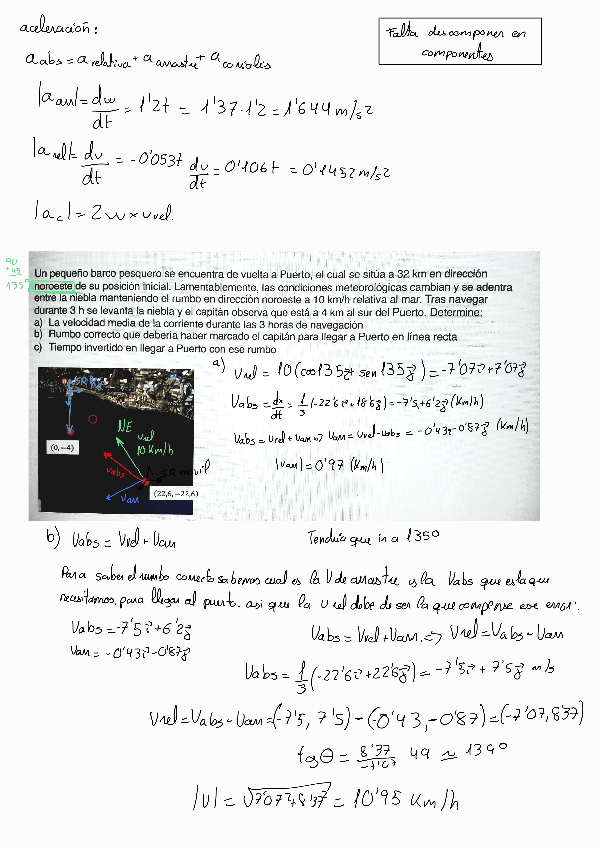 aceleración:
Falta descomponer en
componentes
a abs = a relativa + a arrastre + a coriolis
|a arr| = dw/dt = 1'2t = 1'37·1'2 = 1'644 m/s2
|a rel| = dv/dt = -0'053t dv/dt = 0'106t = 0'1452 m/s2
|ac| = 2w × vrel.
90
+45
135º
Un pequeño barco pesquero se encuentra de vuelta a Puerto, el cual se sitúa a 32 km en dirección
noroeste de su posición inicial. Lamentablemente, las condiciones meteorológicas cambian y se adentra
entre la niebla manteniendo el rumbo en dirección noroeste a 10 km/h relativa al mar. Tras navegar
durante 3 h se levanta la niebla y el capitán observa que está a 4 km al sur del Puerto. Determine:
a) La velocidad media de la corriente durante las 3 horas de navegación
b) Rumbo correcto que debería haber marcado el capitán para llegar a Puerto en línea recta
c) Tiempo invertido en llegar a Puerto con ese rumbo
a) Vrel = 10(cos135i + sen135j) = -7'07i + 7'07j
Vabs = dx/dt = 1/3(-22'6i + 18'6j) = -7'5i + 6'2j (Km/h)
Vabs = Vrel + Van => Van = Vrel - Vabs = -0'43i - 0'87j (Km/h)
|Van| = 0'97 (Km/h)
NE
vrel
10 Km/h
(0,-4)
vabs
SR móvil
Van
(22,6,-22,6)
b) Vabs = Vrel + Van
Tendría que ir a 135º
Para saber el rumbo correcto sabemos cual es la V de arrastre y la Vabs que es la que
necesitamos, para llegar al puerto. asi que la v rel debe de ser la que compense ese error.
Vabs = -7'5i + 6'2j
Vabs = Vrel + Van => Vrel = Vabs - Van
Van = -0'43i - 0'87j
Vabs = 1/3(-22'6i + 22'6j) = -7'5i + 7'5j m/s
Vrel = Vabs - Van = (-7'5, 7'5) - (-0'43, -0'87) = (-7'07, 8'37)
tgθ = 8'37/-7'07 49 ≈ 139º
|V| = √7'07²+8'37² = 10'95 Km/h